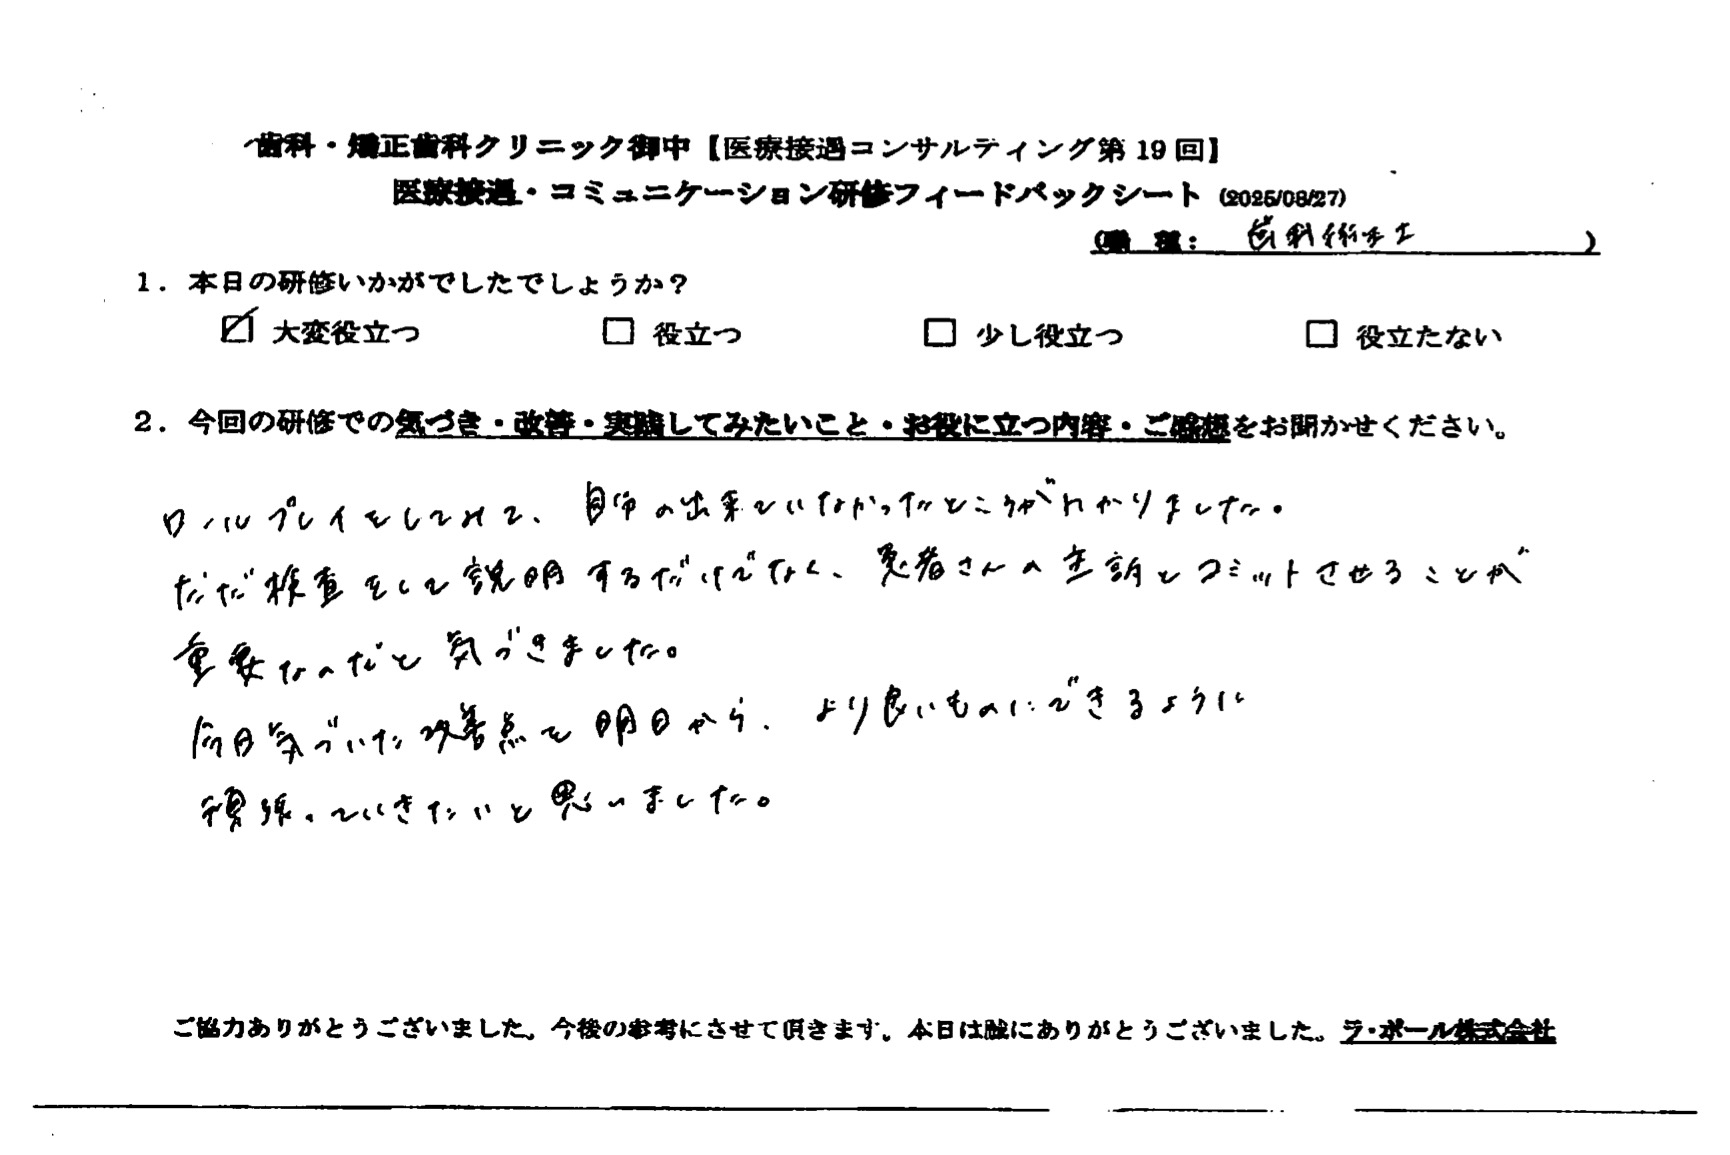 歯科・矯正歯科クリニック御中【医療接遇コンサルティング第19回】
医療接遇・コミュニケーション研修フィードバックシート (2025/08/27)
(職 種: 歯科衛生士 )
1. 本日の研修いかがでしたでしょうか?
☑ 大変役立つ □ 役立つ □ 少し役立つ □ 役立たない
2. 今回の研修での気づき・改善・実践してみたいこと・お役に立つ内容・ご感想をお聞かせください。
ロールプレイをしてみて、自分の出来ていなかったところがわかりました。
ただ検査をして説明するだけでなく、患者さんの主訴とコミットさせることが
重要なのだと気づきました。
今日気づいた改善点を明日から、より良いものにできるように
頑張っていきたいと思いました。
ご協力ありがとうございました。今後の参考にさせて頂きます。本日は誠にありがとうございました。ラ・ポール株式会社